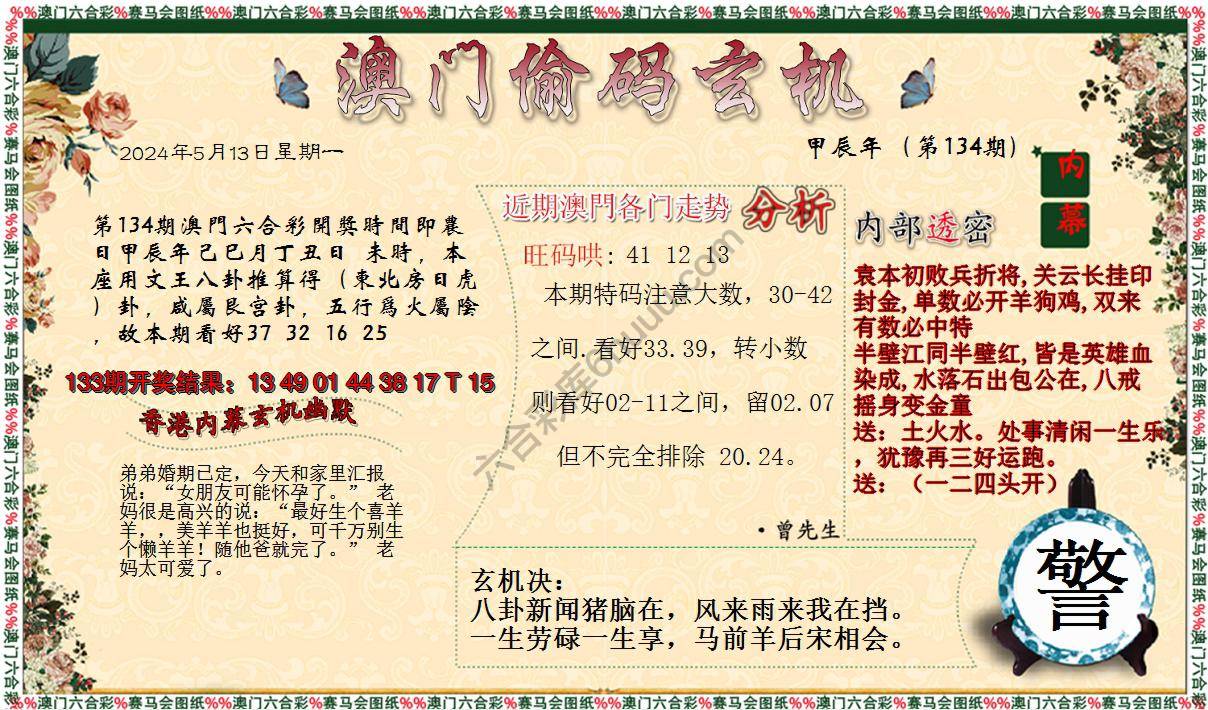 %%澳门六合彩%赛马会图纸%%澳门六合彩%赛马会图纸%%澳门六合彩%赛马会图纸%%澳门六合彩%赛马会图纸%%澳门六合彩%赛马会图纸%%澳门六合彩%赛马会图纸%%
澳门偷码玄机
2024年5月13日星期一
甲辰年（第134期）
内幕
第134期澳門六合彩開獎時間即農
日甲辰年己巳月丁丑日 未時，本
座用文王八卦推算得（東北房日虎
）卦，咸屬艮宫卦，五行爲火屬陰
，故本期看好37 32 16 25
133期开奖结果：13 49 01 44 38 17 T 15
香港内幕玄机幽默
弟弟婚期已定，今天和家里汇报
说：“女朋友可能怀孕了。” 老
妈很是高兴的说：“最好生个喜羊
羊，，美羊羊也挺好，可千万别生
个懒羊羊！随他爸就完了。” 老
妈太可爱了。
近期澳門各门走势 分析
旺码哄：41 12 13
本期特码注意大数，30-42
之间.看好33.39，转小数
则看好02-11之间，留02.07
但不完全排除 20.24。
·曾先生
内部透密
袁本初败兵折将,关云长挂印
封金,单数必开羊狗鸡,双来
有数必中特
半壁江同半壁红,皆是英雄血
染成,水落石出包公在,八戒
摇身变金童
送：土火水。处事清闲一生乐
，犹豫再三好运跑。
送：（一二四头开）
玄机决：
八卦新闻猪脑在，风来雨来我在挡。
一生劳碌一生享，马前羊后宋相会。
警
%%澳门六合彩%赛马会图纸%%澳门六合彩%赛马会图纸%%澳门六合彩%赛马会图纸%%澳门六合彩%赛马会图纸%%澳门六合彩%赛马会图纸%%澳门六合彩%赛马会图纸%%